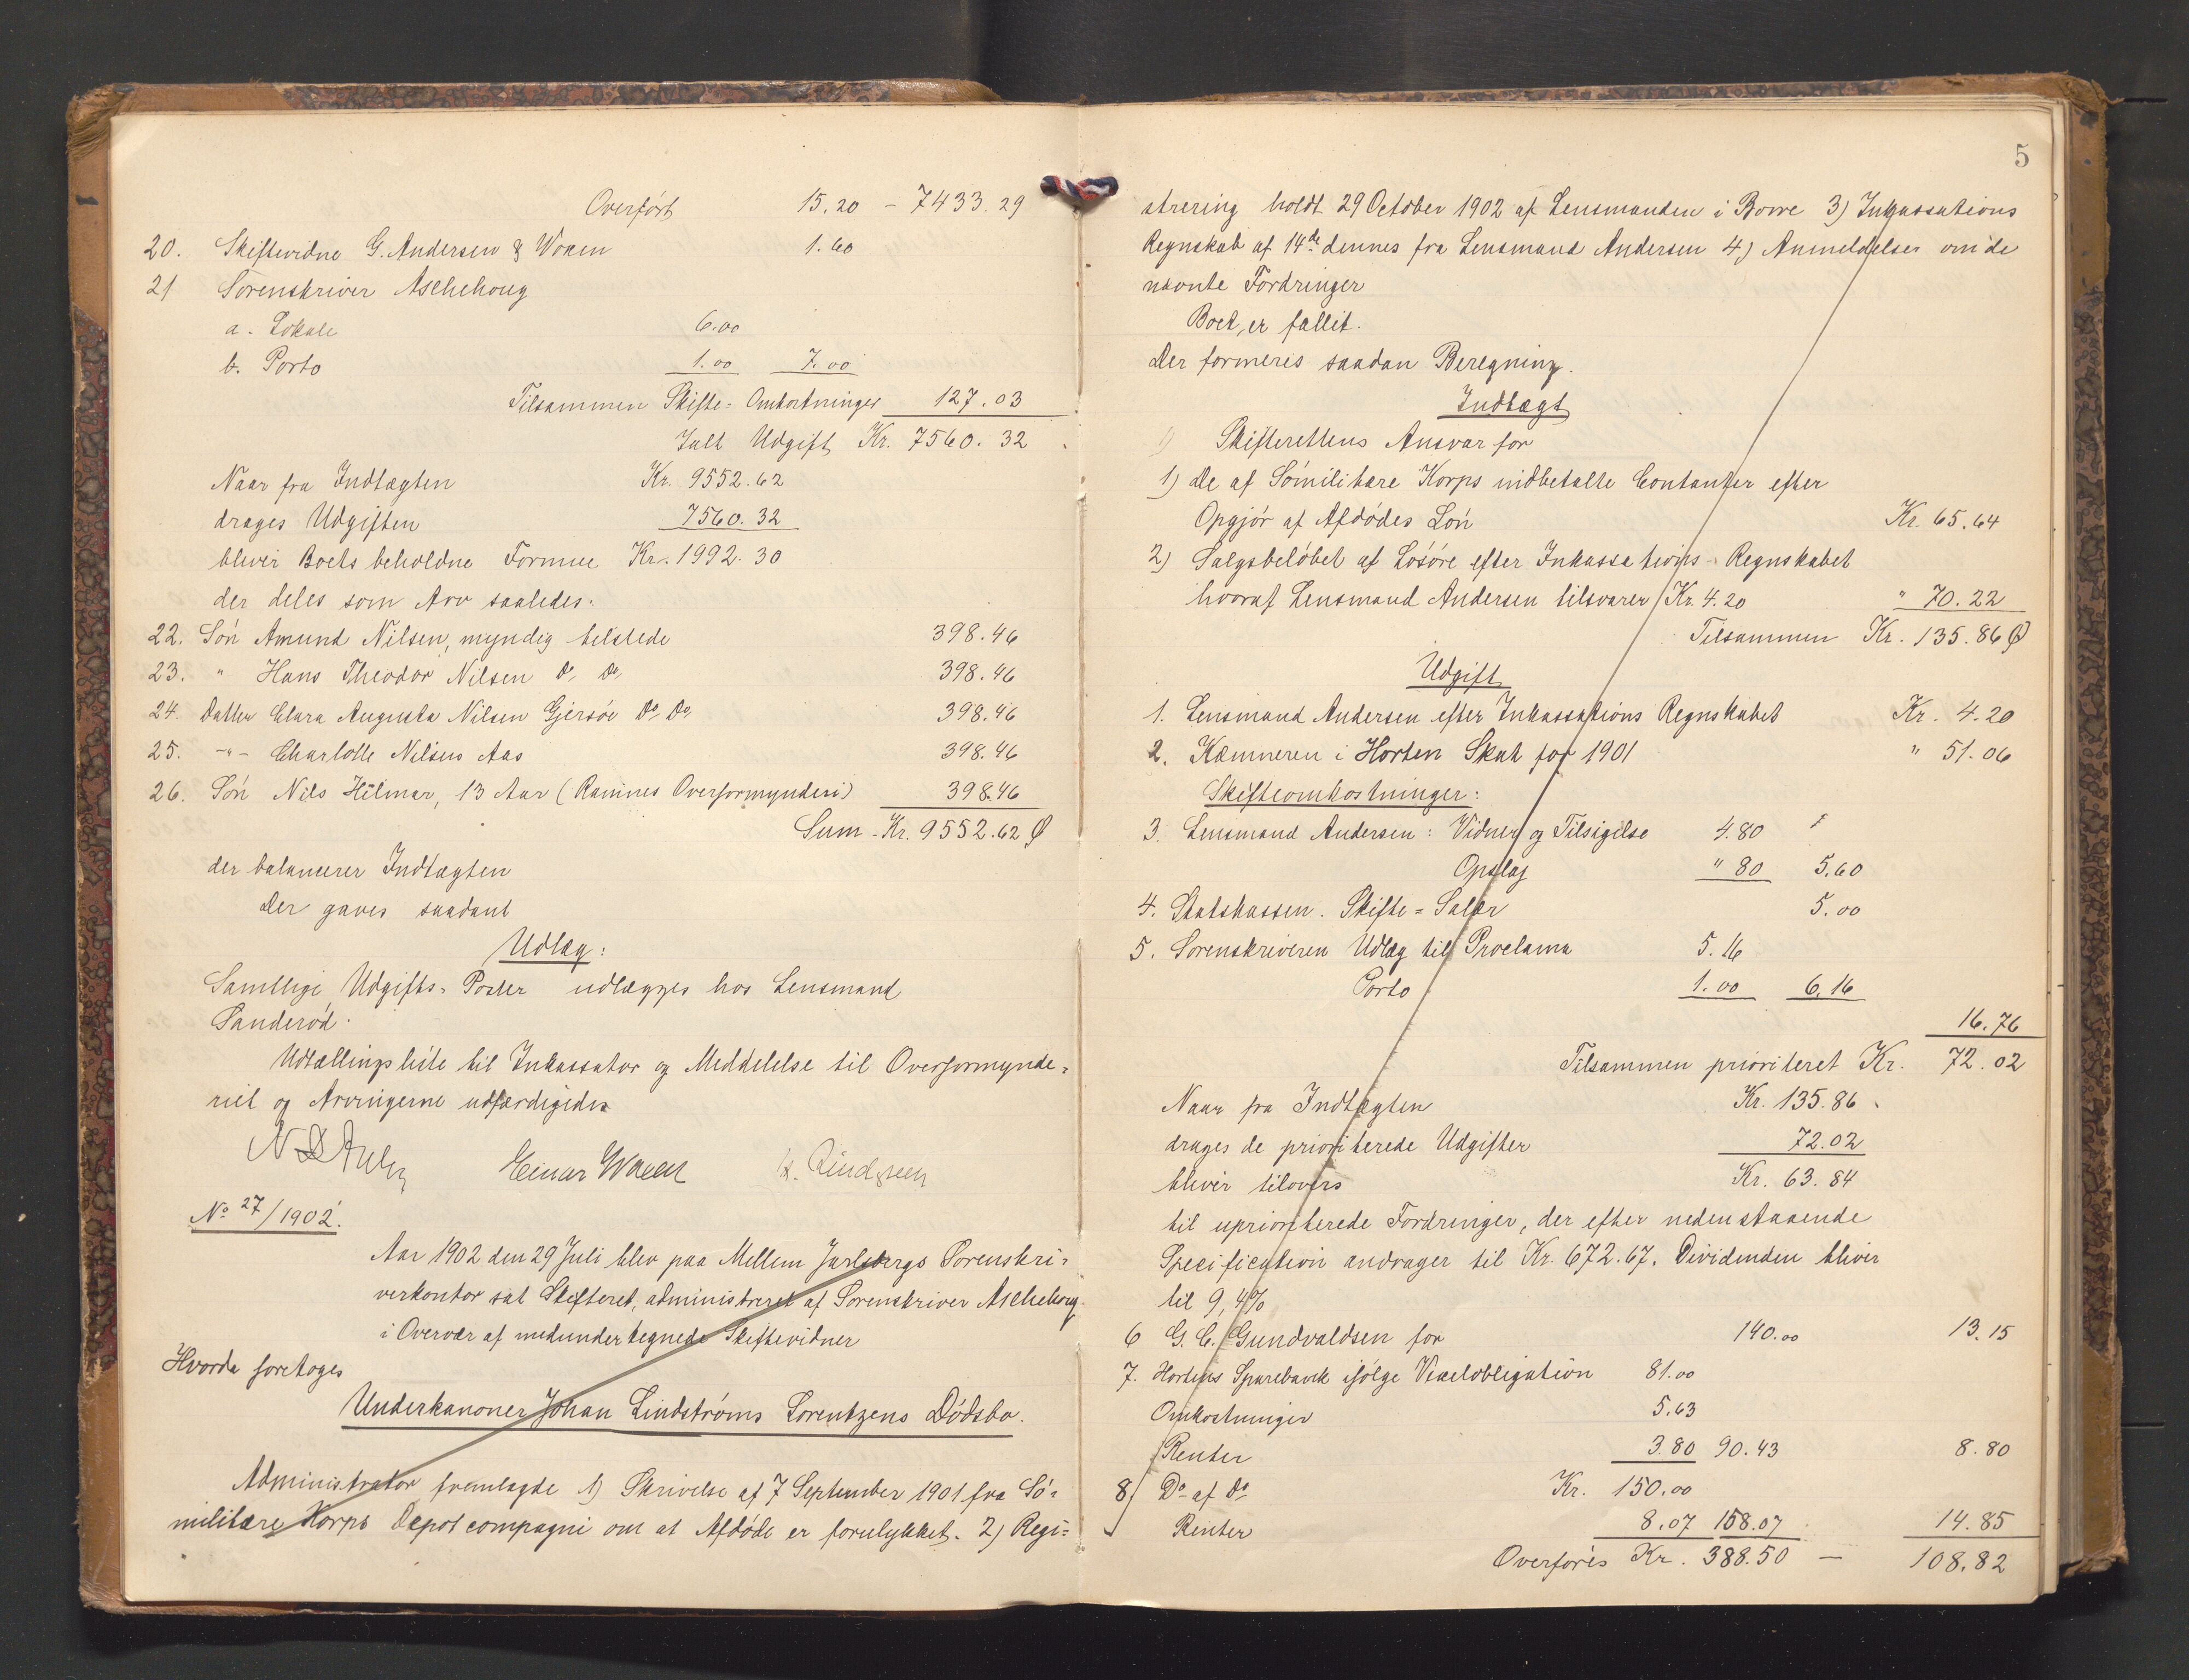 Overført 15.20 – 7433.29
20. Skiftevidne G. Andersen & Waaen 1.60
21 Sorenskriver Aschehoug
a. Lokale 6.00
b. Porto 1.00 7.00
Tilsammen Skifte-Omkostninger 127.03
Ialt Udgift Kr. 7560.32
Naar fra Indtægten Kr. 9552.62
drages Udgiften 7560.32
bliver Boets beholdne Formue Kr. 1992.30
der deles som Arv saaledes:
22. Søn Amund Nilsen, myndig tilstede 398.46
23. " Hans Theodor Nilsen Do Do 398.46
24. Datter Clara Augusta Nilsen Gjersøe Do Do 398.46
25. -"- Charlotte Nilsens Aas 398.46
26. Søn Nils Hilmar, 13 Aar (Ramnes Overformynderi) 398.46
Sum - Kr. 9552.62
der balancerer Indtægten
Der gaves saadant
Udlæg:
Samtlige Udgifts-Poster udlægges hos Lensmand
Sanderød.
Udtællingsliste til Inkassator og Meddelelse til Overformynde-
riet og Arvingerne udfærdigedes
Einar Waaen
No 27/1902.
Aar 1902 den 29 Juli blev paa Mellem Jarlsbergs Sorenskri-
verkontor sat Skifteret, administreret af Sorenskriver Aschehoug
i Overvær af medundertegnede Skiftevidner
Hvorda foretoges
Underkanoner Johan Lindstrøms Lorentzens Dødsbo.
Administrator fremlagde 1) Skrivelse af 7 September 1901 fra Sø-
militære Korps Depotcompagni om at Afdøde er forulykket. 2) Regi-
5
strering holdt 29 October 1902 af Lensmanden i Borre 3) Inkassations
Regnskab af 14de dennes fra Lensmand Andersen 4) Anmeldelser om de
nævnte Fordringer
Boet er fallit.
Der formeres saadan Beregning.
Indtægt
Skifterettens Ansvar for
1) De af Sømilitære Korps indbetalte Contanter efter
Opgjør af Afdødes Løn Kr. 65.64
2) Salgsbeløbet af Løsøre efter Inkassations-Regnskabet
hvoraf Lensmand Andersen tilsvarer Kr. 4.20 " 70.22
Tilsammen Kr. 135.86
Udgift
1. Lensmand Andersen efter Inkassations Regnskabet Kr. 4.20
2. Kæmneren i Horten Skat for 1901 " 51.06
Skifteomkostninger:
3. Lensmand Andersen: Vidner og Tilsigelse 4.80
Opslag " 80 5.60
4. Statskassen. Skifte-Salær 5.00
5. Sorenskriveren Udlæg til Proclama 5.16
Porto 1.00 6.16
16.76
Tilsammen prioriteret Kr. 72.02
Naar fra Indtægten Kr. 135.86
drages de prioriterede Udgifter 72.02
bliver tilovers Kr. 63.84
til uprioriterede Fordringer, der efter nedenstaaende
Specification andrager til Kr. 672.67. Dividenden bliver
til 9,4%
6 G. C. Gundvaldsen for 140.00 13.15
7. Hortens Sparebank ifølge Vexelobligation 81.00
Omkostninger 5.63
Renter 3.80 90.43 8.80
8 Do af do Kr. 150.00
Renter 8.07 158.07 14.85
Overføres Kr. 388.50 – 108.82